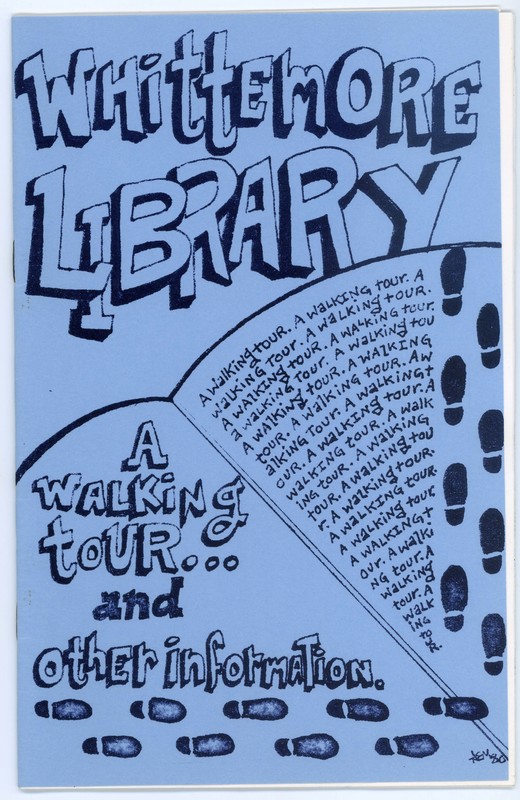 Whittemore
Library
A walking tour. A walking tour. A
walking tour. A walking tour.
A walking tour. A walking tour.
a walking tour. A walking tou
A walking tour. A walking
tour. A walking tour. A w
alking tour. A walking t
our. A walking tour. A
walking tour. A walk
ing tour. A walking
tour. A walking tou
r. A walking tour.
A walking tour
A walking tour.
A walking t
our. A walki
ng tour. A
walking
tour. A
walk
ing to
A
walking
tour...
and
other information.